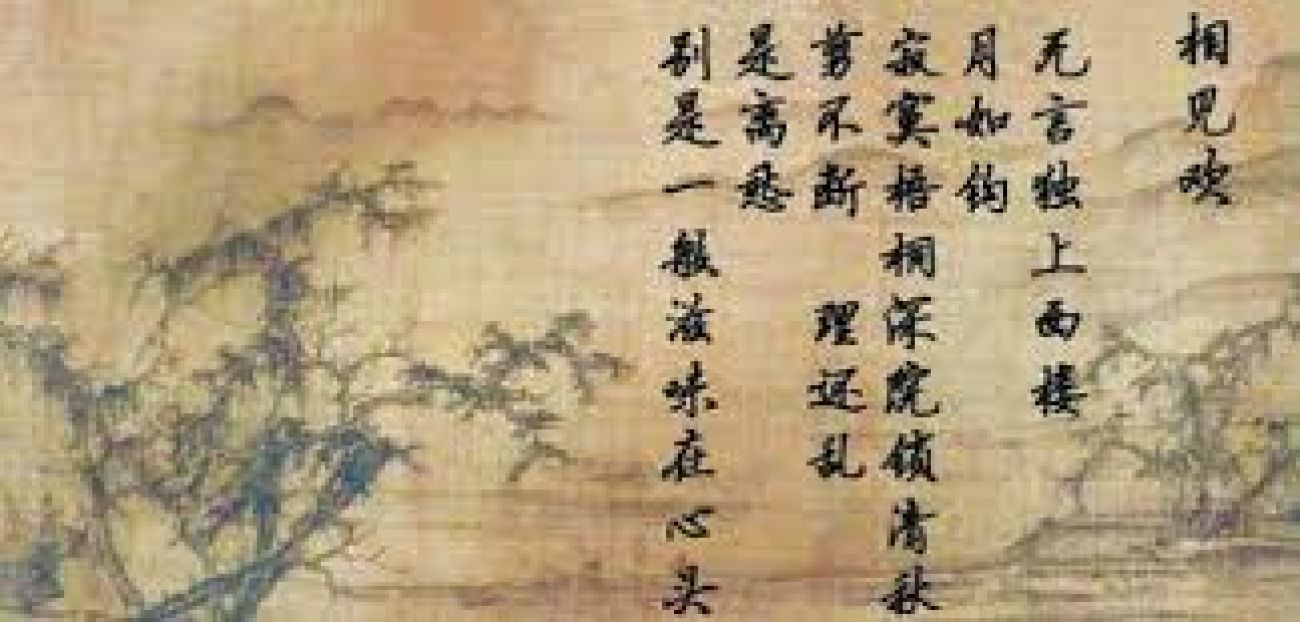 相见欢
无言独上西楼
月如钩
寂寞梧桐深院锁清秋
剪不断 理还乱
是离愁
别是一般滋味在心头